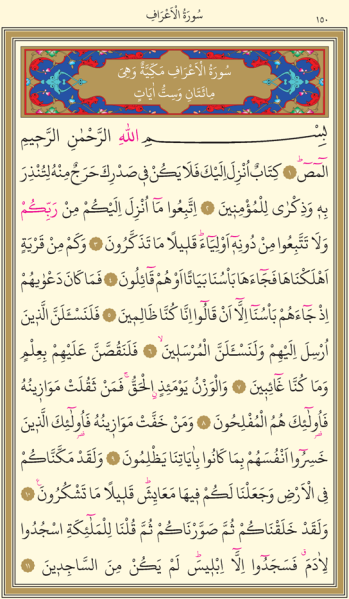 سُورَةُ الْاَعْرَافِ ١٥٠
سُورَةُ الْاَعْرَافِ مَكِّيَّةٌ وَهِىَ
مِائَتَانِ وَسِتُّ اٰيَاتٍ
بِسْمِ اللّٰهِ الرَّحْمٰنِ الرَّحٖيمِ
الٓمٓصٓ ۚ ١ كِتَابٌ اُنْزِلَ اِلَيْكَ فَلَا يَكُنْ فٖى صَدْرِكَ حَرَجٌ مِنْهُ لِتُنْذِرَ
بِهٖ وَذِكْرٰى لِلْمُؤْمِنٖينَ ٢ اِتَّبِعُوا مَٓا اُنْزِلَ اِلَيْكُمْ مِنْ رَبِّكُمْ
وَلَا تَتَّبِعُوا مِنْ دُونِهٖٓ اَوْلِيَٓاءَ ؕ قَلٖيلًا مَا تَذَكَّرُونَ ٣ وَكَمْ مِنْ قَرْيَةٍ
اَهْلَكْنَاهَا فَجَٓاءَهَا بَاْسُنَا بَيَاتًا اَوْ هُمْ قَٓائِلُونَ ٤ فَمَا كَانَ دَعْوٰيهُمْ
اِذْ جَٓاءَهُمْ بَاْسُنَٓا اِلَّٓا اَنْ قَالُٓوا اِنَّا كُنَّا ظَالِمٖينَ ٥ فَلَنَسْـَٔلَنَّ الَّذٖينَ
اُرْسِلَ اِلَيْهِمْ وَلَنَسْـَٔلَنَّ الْمُرْسَلٖينَ ۙ ٦ فَلَنَقُصَّنَّ عَلَيْهِمْ بِعِلْمٍ
وَمَا كُنَّا غَٓائِبٖينَ ٧ وَالْوَزْنُ يَوْمَئِذٍ ۨالْحَقُّ ۚ فَمَنْ ثَقُلَتْ مَوَازٖينُهُ
فَاُو۬لٰٓئِكَ هُمُ الْمُفْلِحُونَ ٨ وَمَنْ خَفَّتْ مَوَازٖينُهُ فَاُو۬لٰٓئِكَ الَّذٖينَ
خَسِرُٓوا اَنْفُسَهُمْ بِمَا كَانُوا بِاٰيَاتِنَا يَظْلِمُونَ ٩ وَلَقَدْ مَكَّنَّاكُمْ
فِى الْاَرْضِ وَجَعَلْنَا لَكُمْ فٖيهَا مَعَايِشَ ؕ قَلٖيلًا مَا تَشْكُرُونَ ۟ ١٠
وَلَقَدْ خَلَقْنَاكُمْ ثُمَّ صَوَّرْنَاكُمْ ثُمَّ قُلْنَا لِلْمَلٰٓئِكَةِ اسْجُدُوا
لِاٰدَمَ ۗ فَسَجَدُٓوا اِلَّٓا اِبْلٖيسَ ؕ لَمْ يَكُنْ مِنَ السَّاجِدٖينَ ١١